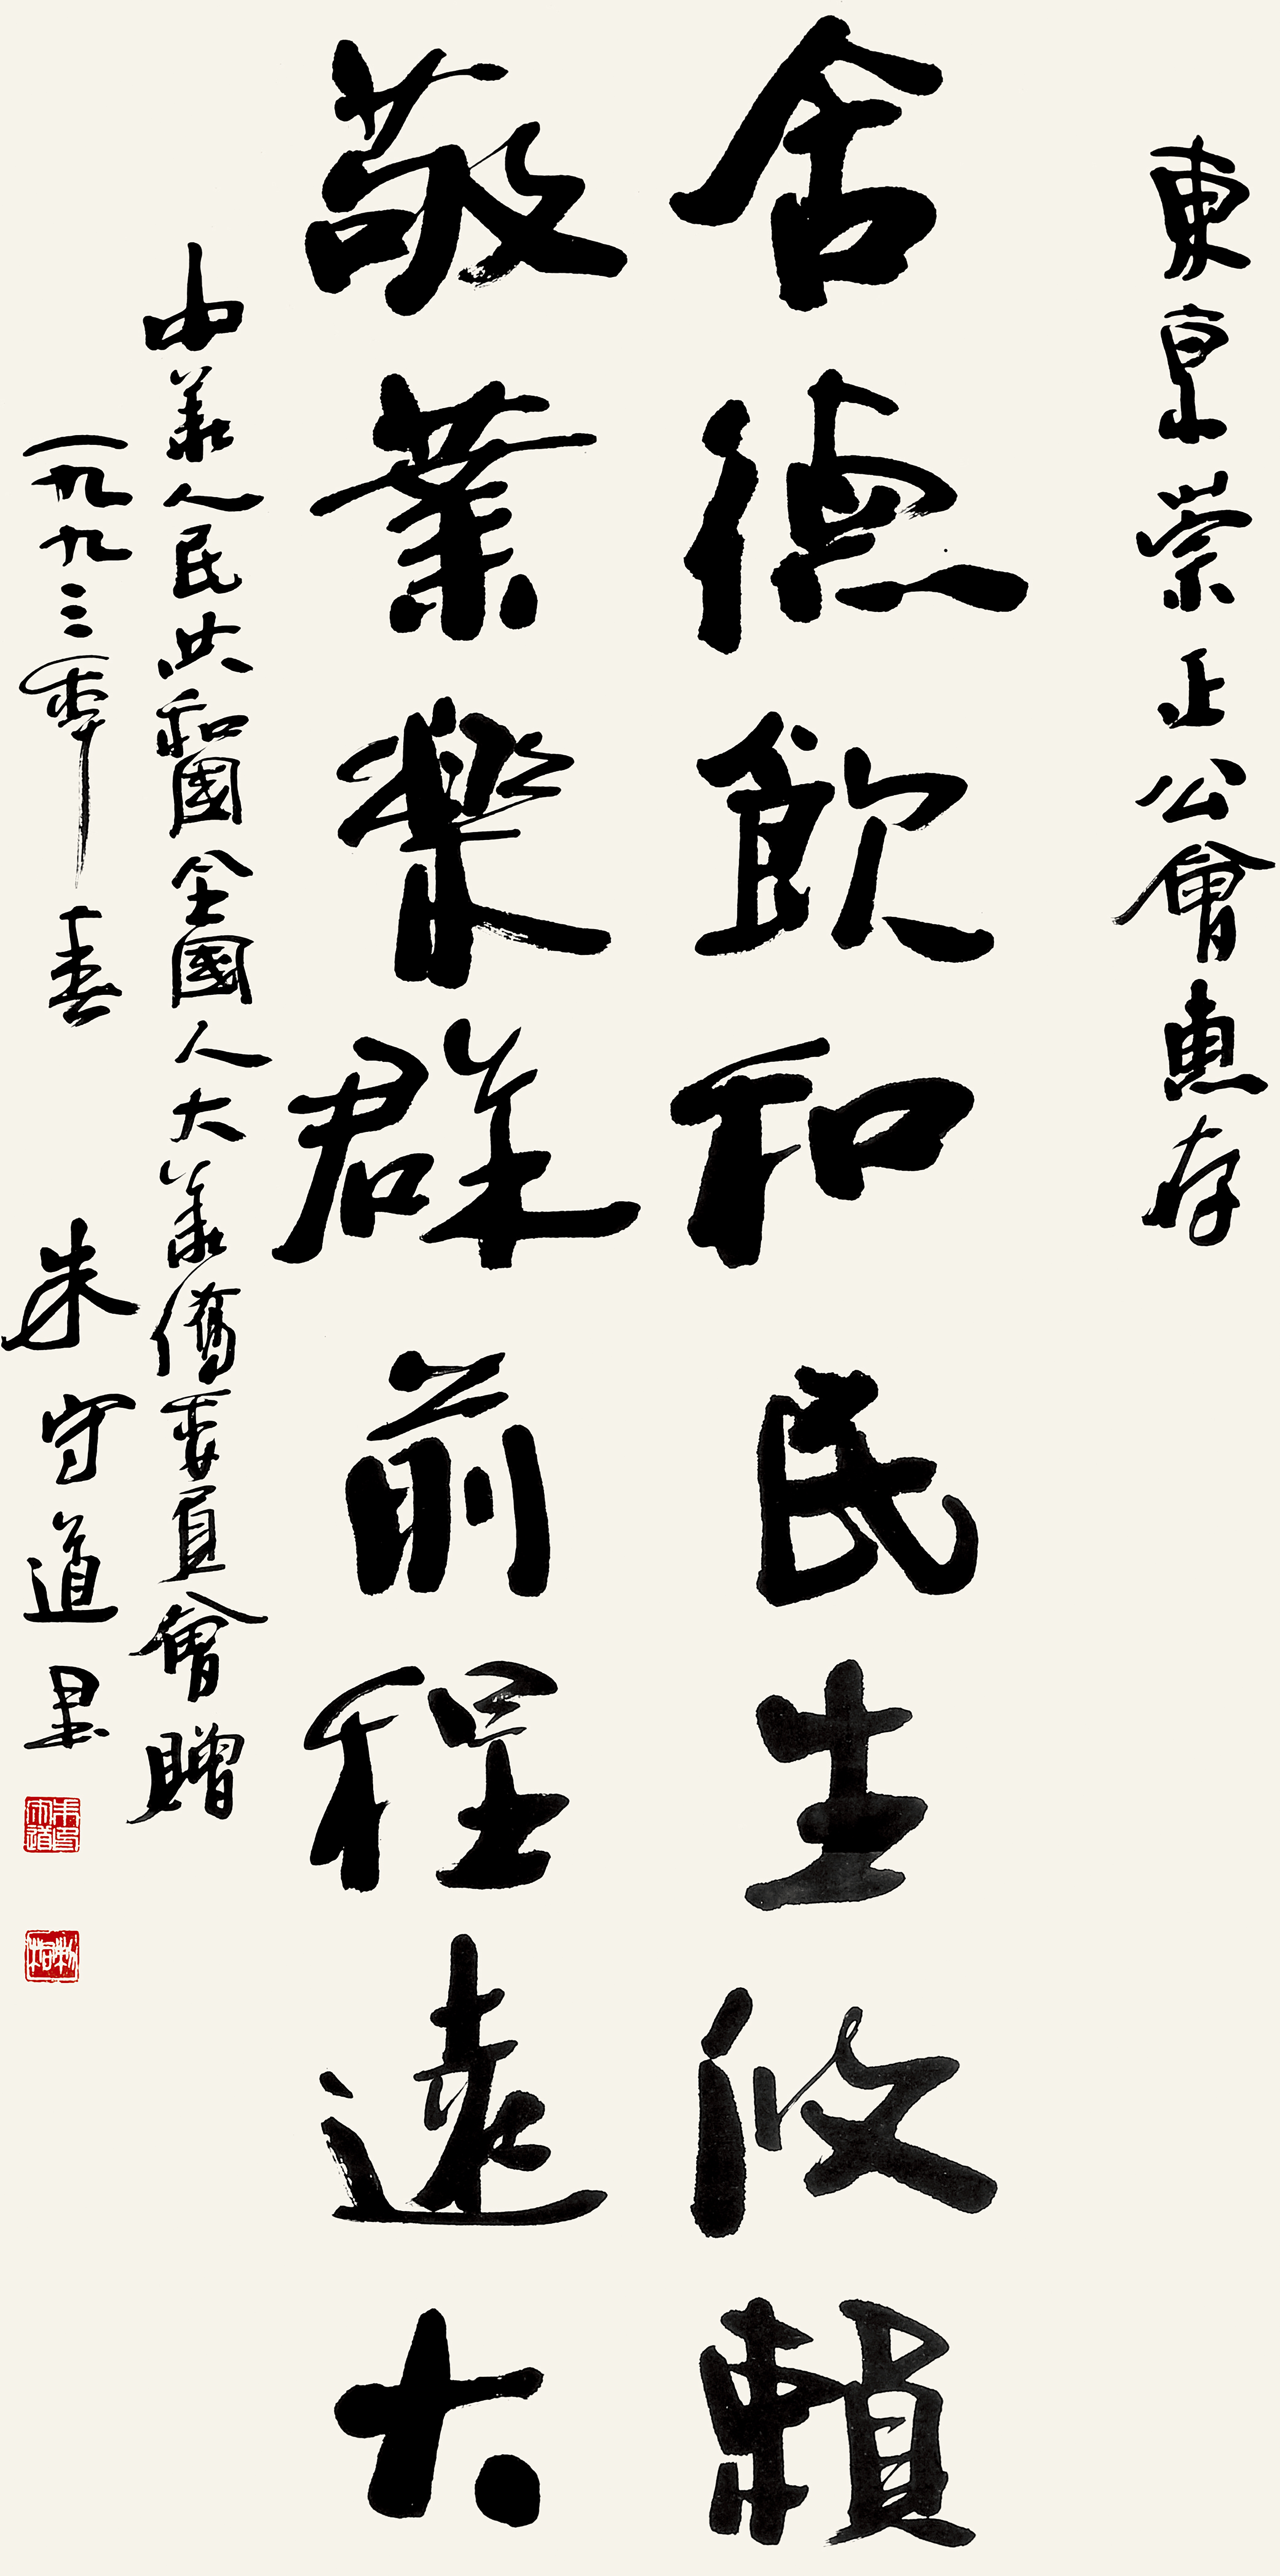 東京崇正公會惠存
舍德飲和民生攸賴
敬業樂群前程遠大
中華人民共和國全國人大華僑委員會贈
一九九三年春 朱守道墨
朱守道